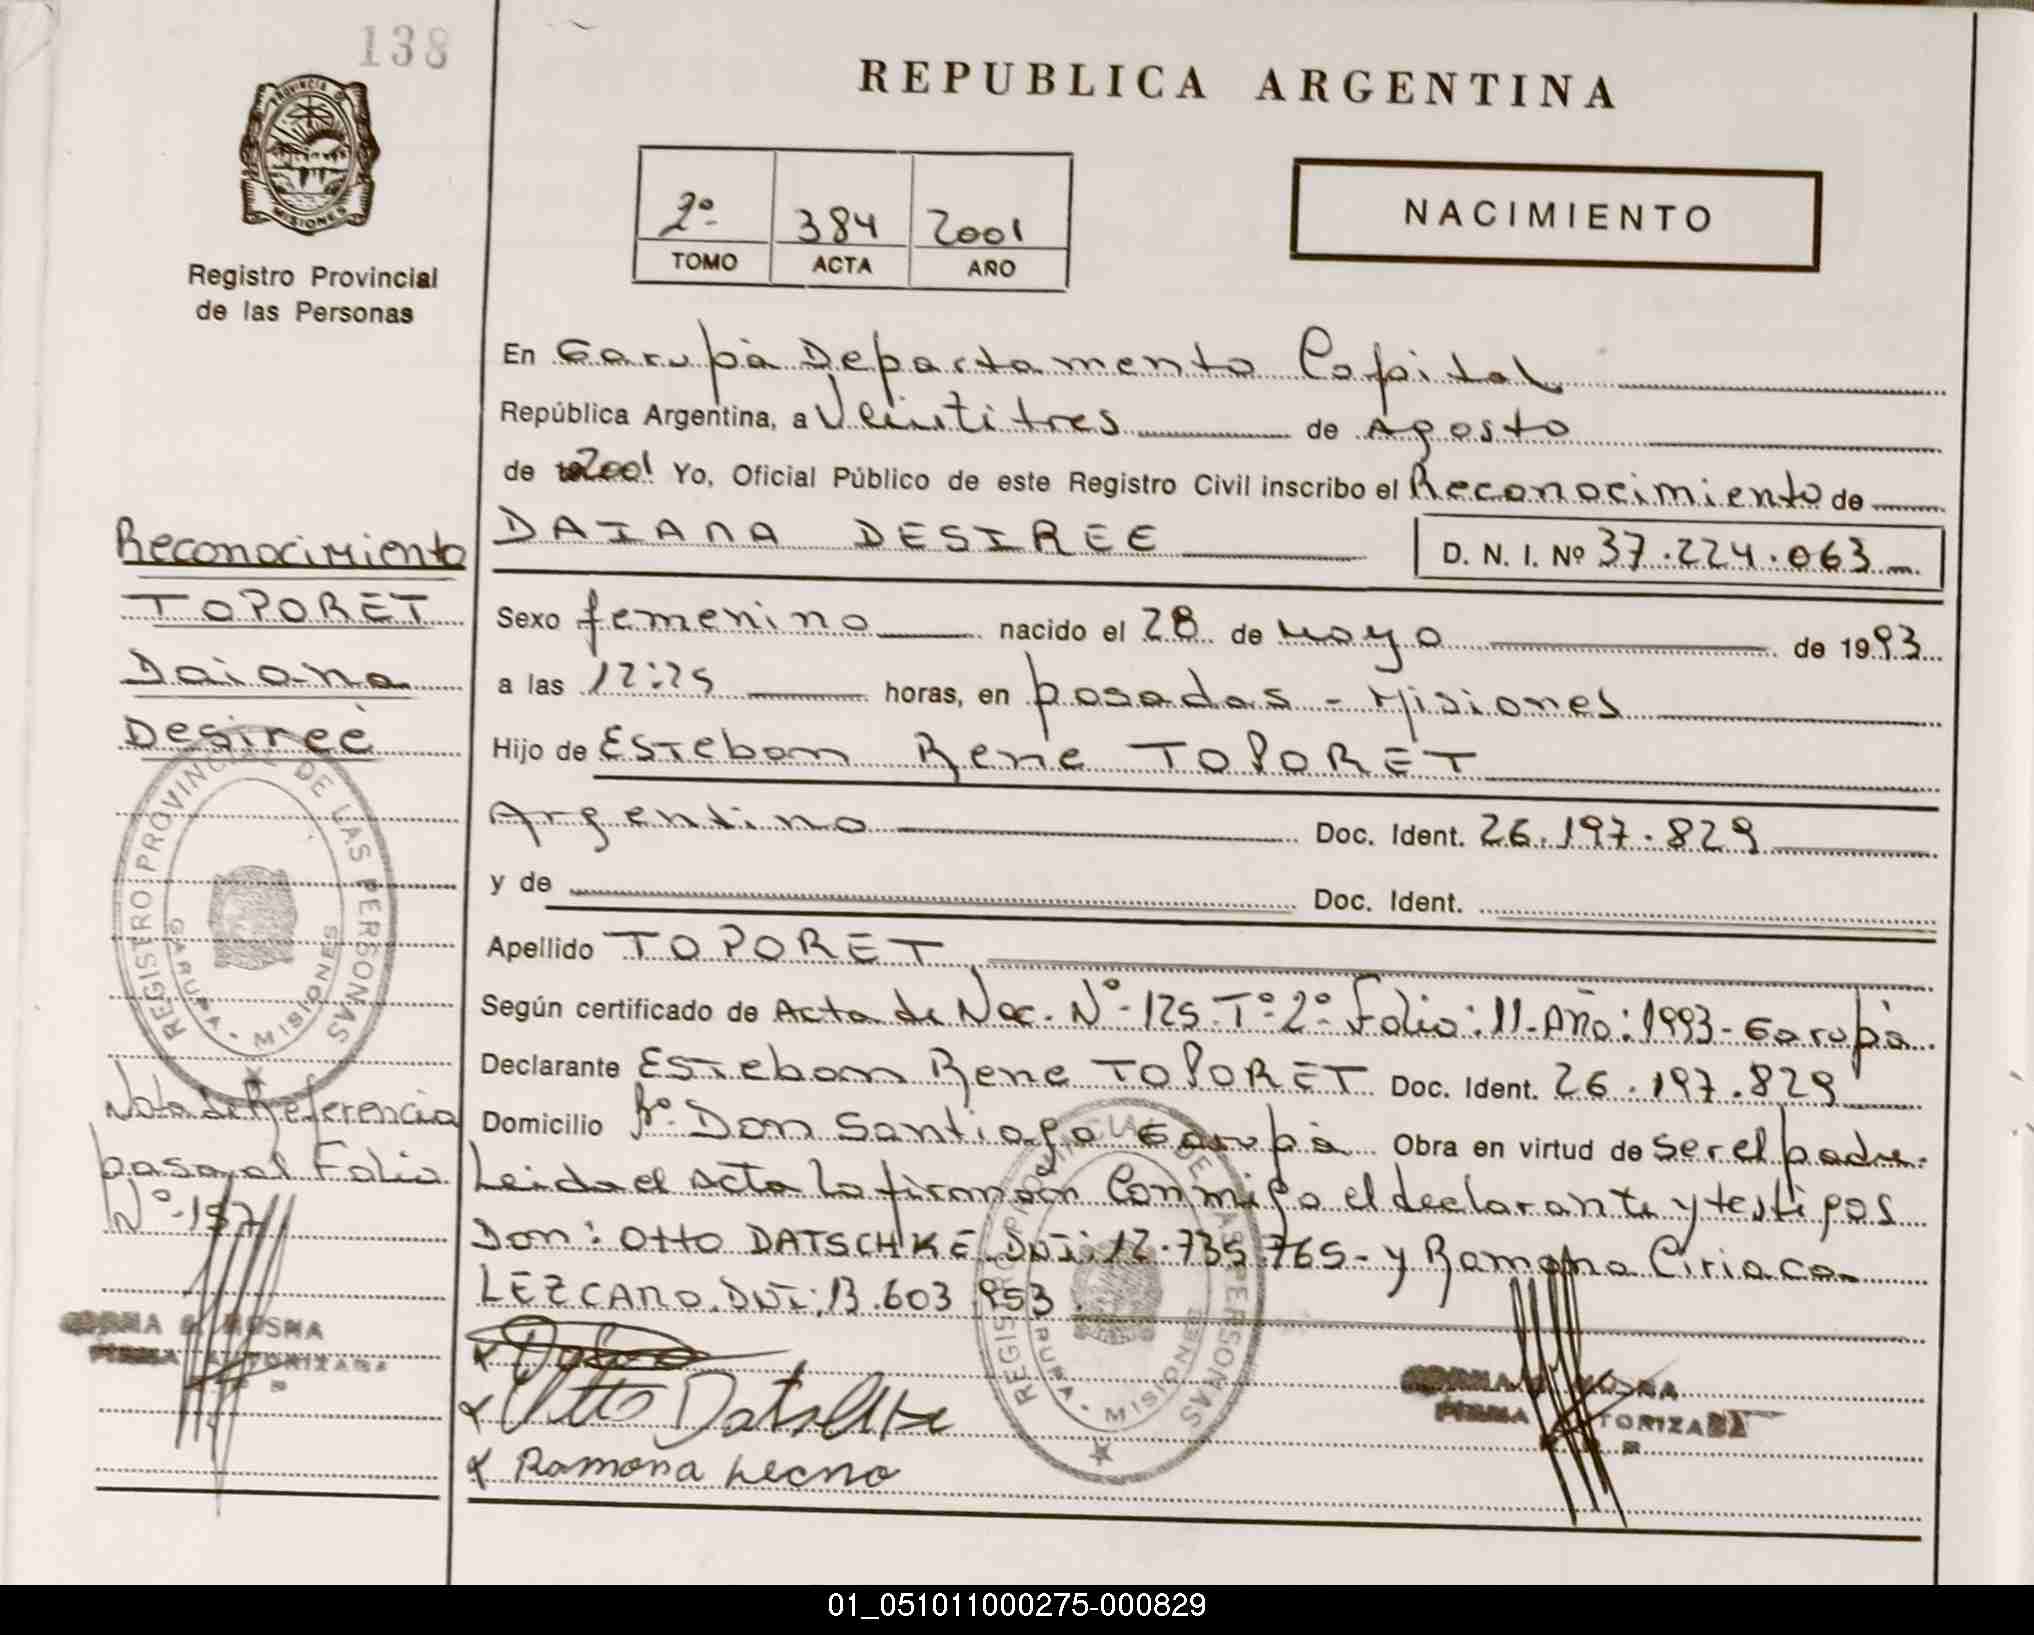 138
PROVINCIA DE
MISIONES
Registro Provincial
de las Personas
REPUBLICA ARGENTINA
2º 384 2001
TOMO ACTA AÑO
NACIMIENTO
En Garupà Departamento Capital
República Argentina, a Veintitres de Agosto
de 2001 Yo, Oficial Público de este Registro Civil inscribo el Reconocimiento de
DAIANA DESIREE D. N. I. Nº 37.224.063
Sexo femenino nacido el 28 de Mayo de 1993
a las 12:25 horas, en posadas - Misiones
Hijo de Esteban Rene TOPORET
Argentino Doc. Ident. 26.197.829
y de Doc. Ident.
Apellido TOPORET
Según certificado de Acta de Nac. Nº-125-Tº-2º-Folio:11-Año:1993-Garupà
Declarante Esteban Rene TOPORET Doc. Ident. 26.197.829
Domicilio Bº Don Santiago Garupà Obra en virtud de ser el padre.
Leida el Acta la firman Conmigo el declarante y testigos
Don: Otto DATSCHKE DNI:12.735.765- y Ramona Ciriaca
LEZCANO. DNI:13.603.953.
Otto Datschke
Ramona Lecno
Reconocimiento
TOPORET
Daiana
Desireé
REGISTRO PROVINCIAL DE LAS PERSONAS
GARUPA - MISIONES
Nota de Referencia
pasa al Folio
Nº-157
MOSNA
FIRMA AUTORIZADA
REGISTRO PROVINCIAL DE LAS PERSONAS
GARUPA - MISIONES
FIRMA AUTORIZADA
01_051011000275-000829